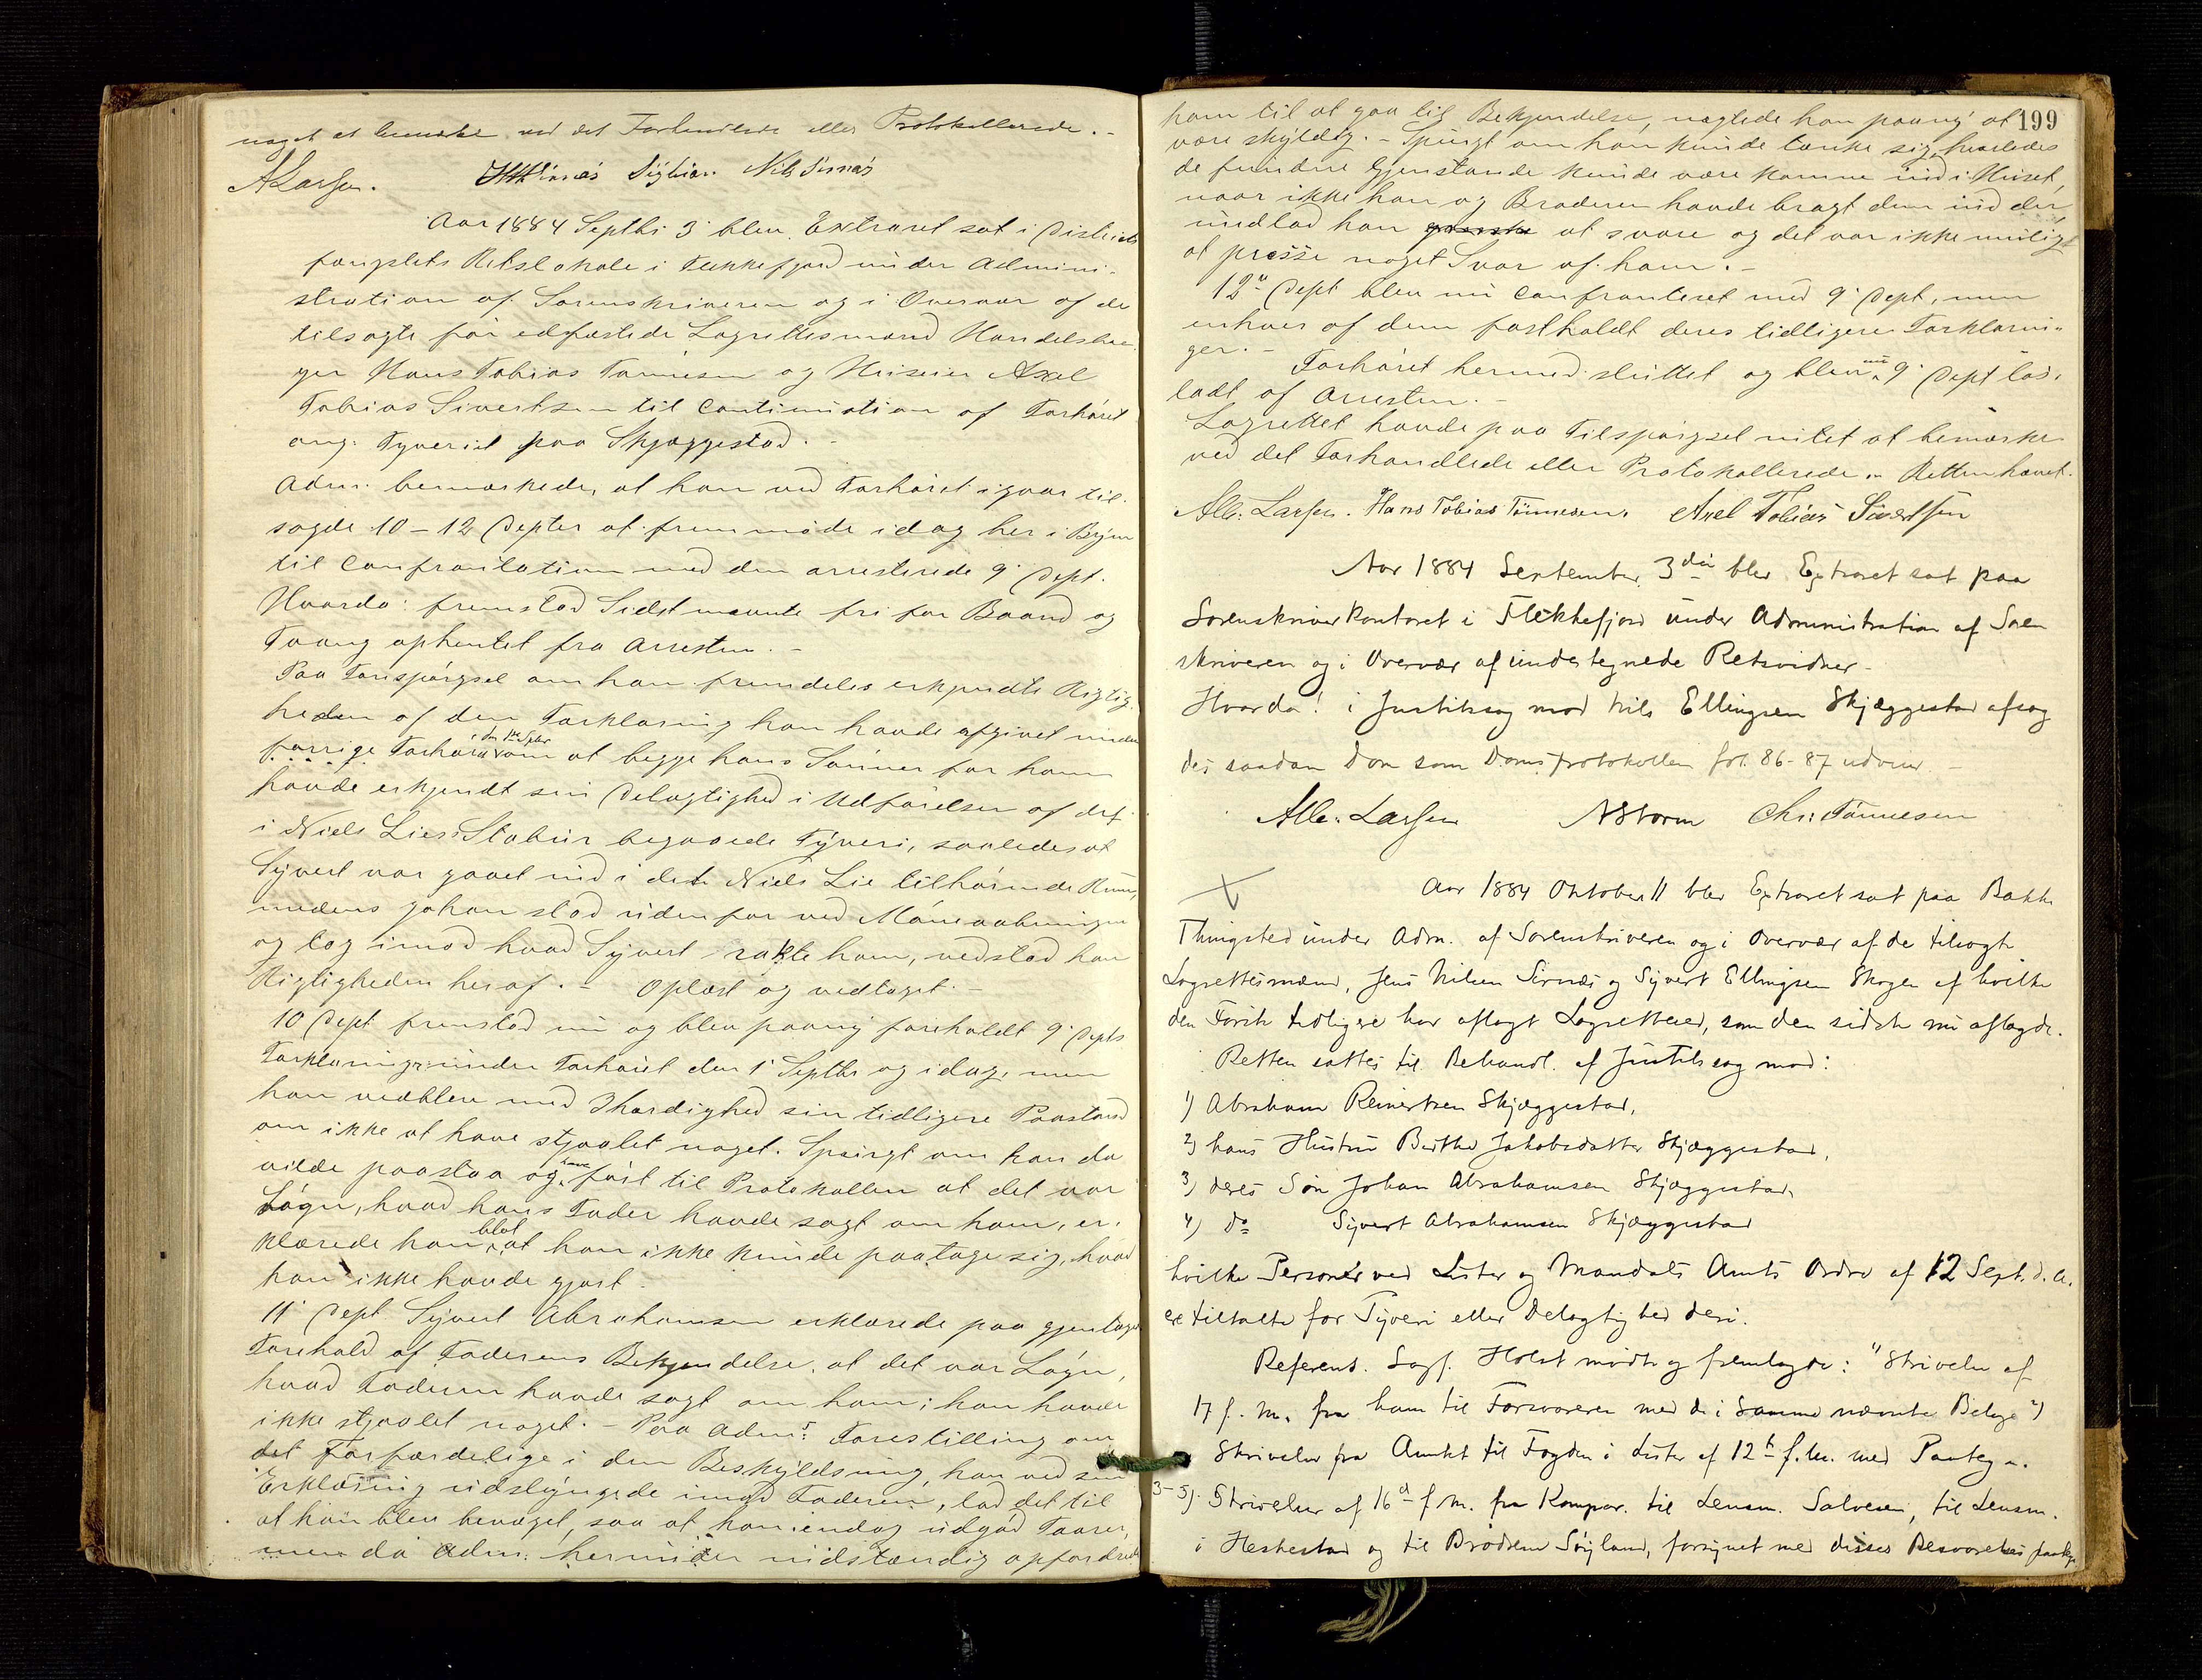 noget at bemærke ved det Forhandlede eller Protokollerede. -
ALarsen. Sirnæs Nils Sirnæs
Aar 1884 Septbr 3 blev Extraret sat i Distrikts
fængslets Retslokale i Flekkefjord under Admini-
stration af Sorenskriveren og i Overvær af de
tilsagte før edfæstede Lagrettesmænd Handelsbor
ger Hans Tobias Tønnesen og Huseier Axel
Tobias Sivertsen til Continuation af Forhøret
ang: Tyveriet paa Skjæggestad. -
Adm: bemærkede, at han ved Forhøret igaar til-
sagde 10 - 12 Depter at fremmøde idag her i Byen
til Confrontation med den arresterede 9' Dept.
Hvorda: fremstod Sidstnævnte fri for Baand og
Tvang ophentet fra Arresten. -
Paa Forespørgsel om han fremdeles erkjendte Rigtig-
heden af den Forklaring han havde afgivet under
forrige Forhør den 1ste Septbr om at begge hans Sønner for ham
havde erkjendt sin Delagtighed i Udførelsen af det
i Niels Lies Stabur begaaede Tyveri, saaledes at
Syvert var gaaet ind i det Niels Lie tilhørende Rum,
medens Johan stod udenfor ved Møneaabningen
og tog imod hvad Syvert rakte ham, vedstod han
Rigtigheden heraf. - Oplæst og vedtaget. -
10 Dept fremstod nu og blev paany foreholdt 9' Depts
Forklaringer under Forhøret den 1' Septbr og idag, men
han vedblev med Ihærdighed sin tidligere Paastand
om ikke at have stjaalet noget. Spurgt om han da
vilde paastaa og have ført til Protokollen at det var
Løgn, hvad hans Fader havde sagt om ham, er-
klærede han blot, at han ikke kunde paatage sig, hvad
han ikke havde gjort.
11' Dept Syvert Abrahamsen erklærede paa gjentaget
Forehold af Faderens Bekjendelse, at det var Løgn,
hvad Faderen havde sagt om ham; han havde
ikke stjaalet noget. - Paa Adms: Forestilling om
det Forfærdelige i den Beskyldning, han ved sin
Erklæring udslyngede imod Faderen, lod det til
at han blev bevæget, saa at han endog udgød Taarer,
men da Adm. herunder indstændig opfordrede
199
ham til at gaa til Bekjendelse, nægtede han paany at
være skyldig. - Spurgt om han kunde tænke sig, hvorledes
de fundne Gjenstande kunde være komne ind i Huset,
naar ikke han og Broderen havde bragt dem ind der,
undlod han at svare og det var ikke muligt
at presse noget Svar af ham. -
12' Dept blev nu confronteret med 9' Dept, men
enhver af dem fastholdt deres tidligere Forklarin-
ger. -
Forhøret hermed sluttet og blev nu 9' Dept løs-
ladt af Arresten. -
Lagrettet havde paa Tilspørgsel intet at bemærke
ved det Forhandlede eller Protokollerede. Retten hævet.
Alb: Larsen. Hans Tobias Tønnesen. Axel Tobias Sivertsen
Aar 1884 September 3die blev Extraret sat paa
Sorenskriverkontoret i Flekkefjord under Administration af Soren
skriveren og i Overvær af undertegnede Retsvidner -
Hvorda: i Justitssag mod Nils Ellingsen Skjæggestad afsag
des saadan Dom som Domsprotokollen fol. 86-87 udviser. -
Alb: Larsen NStorm Chr: Tønnesen
Aar 1884 Oktober 11 blev Extraret sat paa Bakke
Thingsted under Adm. af Sorenskriveren og i Overvær af de tilsagte
Lagrettesmænd, Jens Nilsen Sirnæs og Syvert Ellingsen Skogen af hvilke
den Første tidligere har aflagt Lagretteed, som den sidste nu aflagde.
Retten sattes til Behandl. af Justitssag mod:
1) Abraham Reinertsen Skjæggestad,
2) hans Hustru Berthe Jakobsdatter Skjæggestad,
3) deres Søn Johan Abrahamsen Skjæggestad,
4) do Syvert Abrahamsen Skjæggestad
hvilke Personer ved Lister og Mandals Amts Ordre af 12 Sept. d. A.
er tiltalte for Tyveri eller Delagtighed deri.
Referent. Sagf. Holst mødte og fremlagde: "Skrivelse af
17 f. M. fra ham til Forsvareren med de i samme nævnte Bilage 2)
Skrivelse fra Amtet til Fogden i Lister af 12te f. M. med Paategn.
3-5). Skrivelser af 16de f. M. fra Kompar. til Lensm. Salvesen, til Lensm.
i Heskestad og til Brødrene Søyland, forsynet med disses Besvarelses paateg.